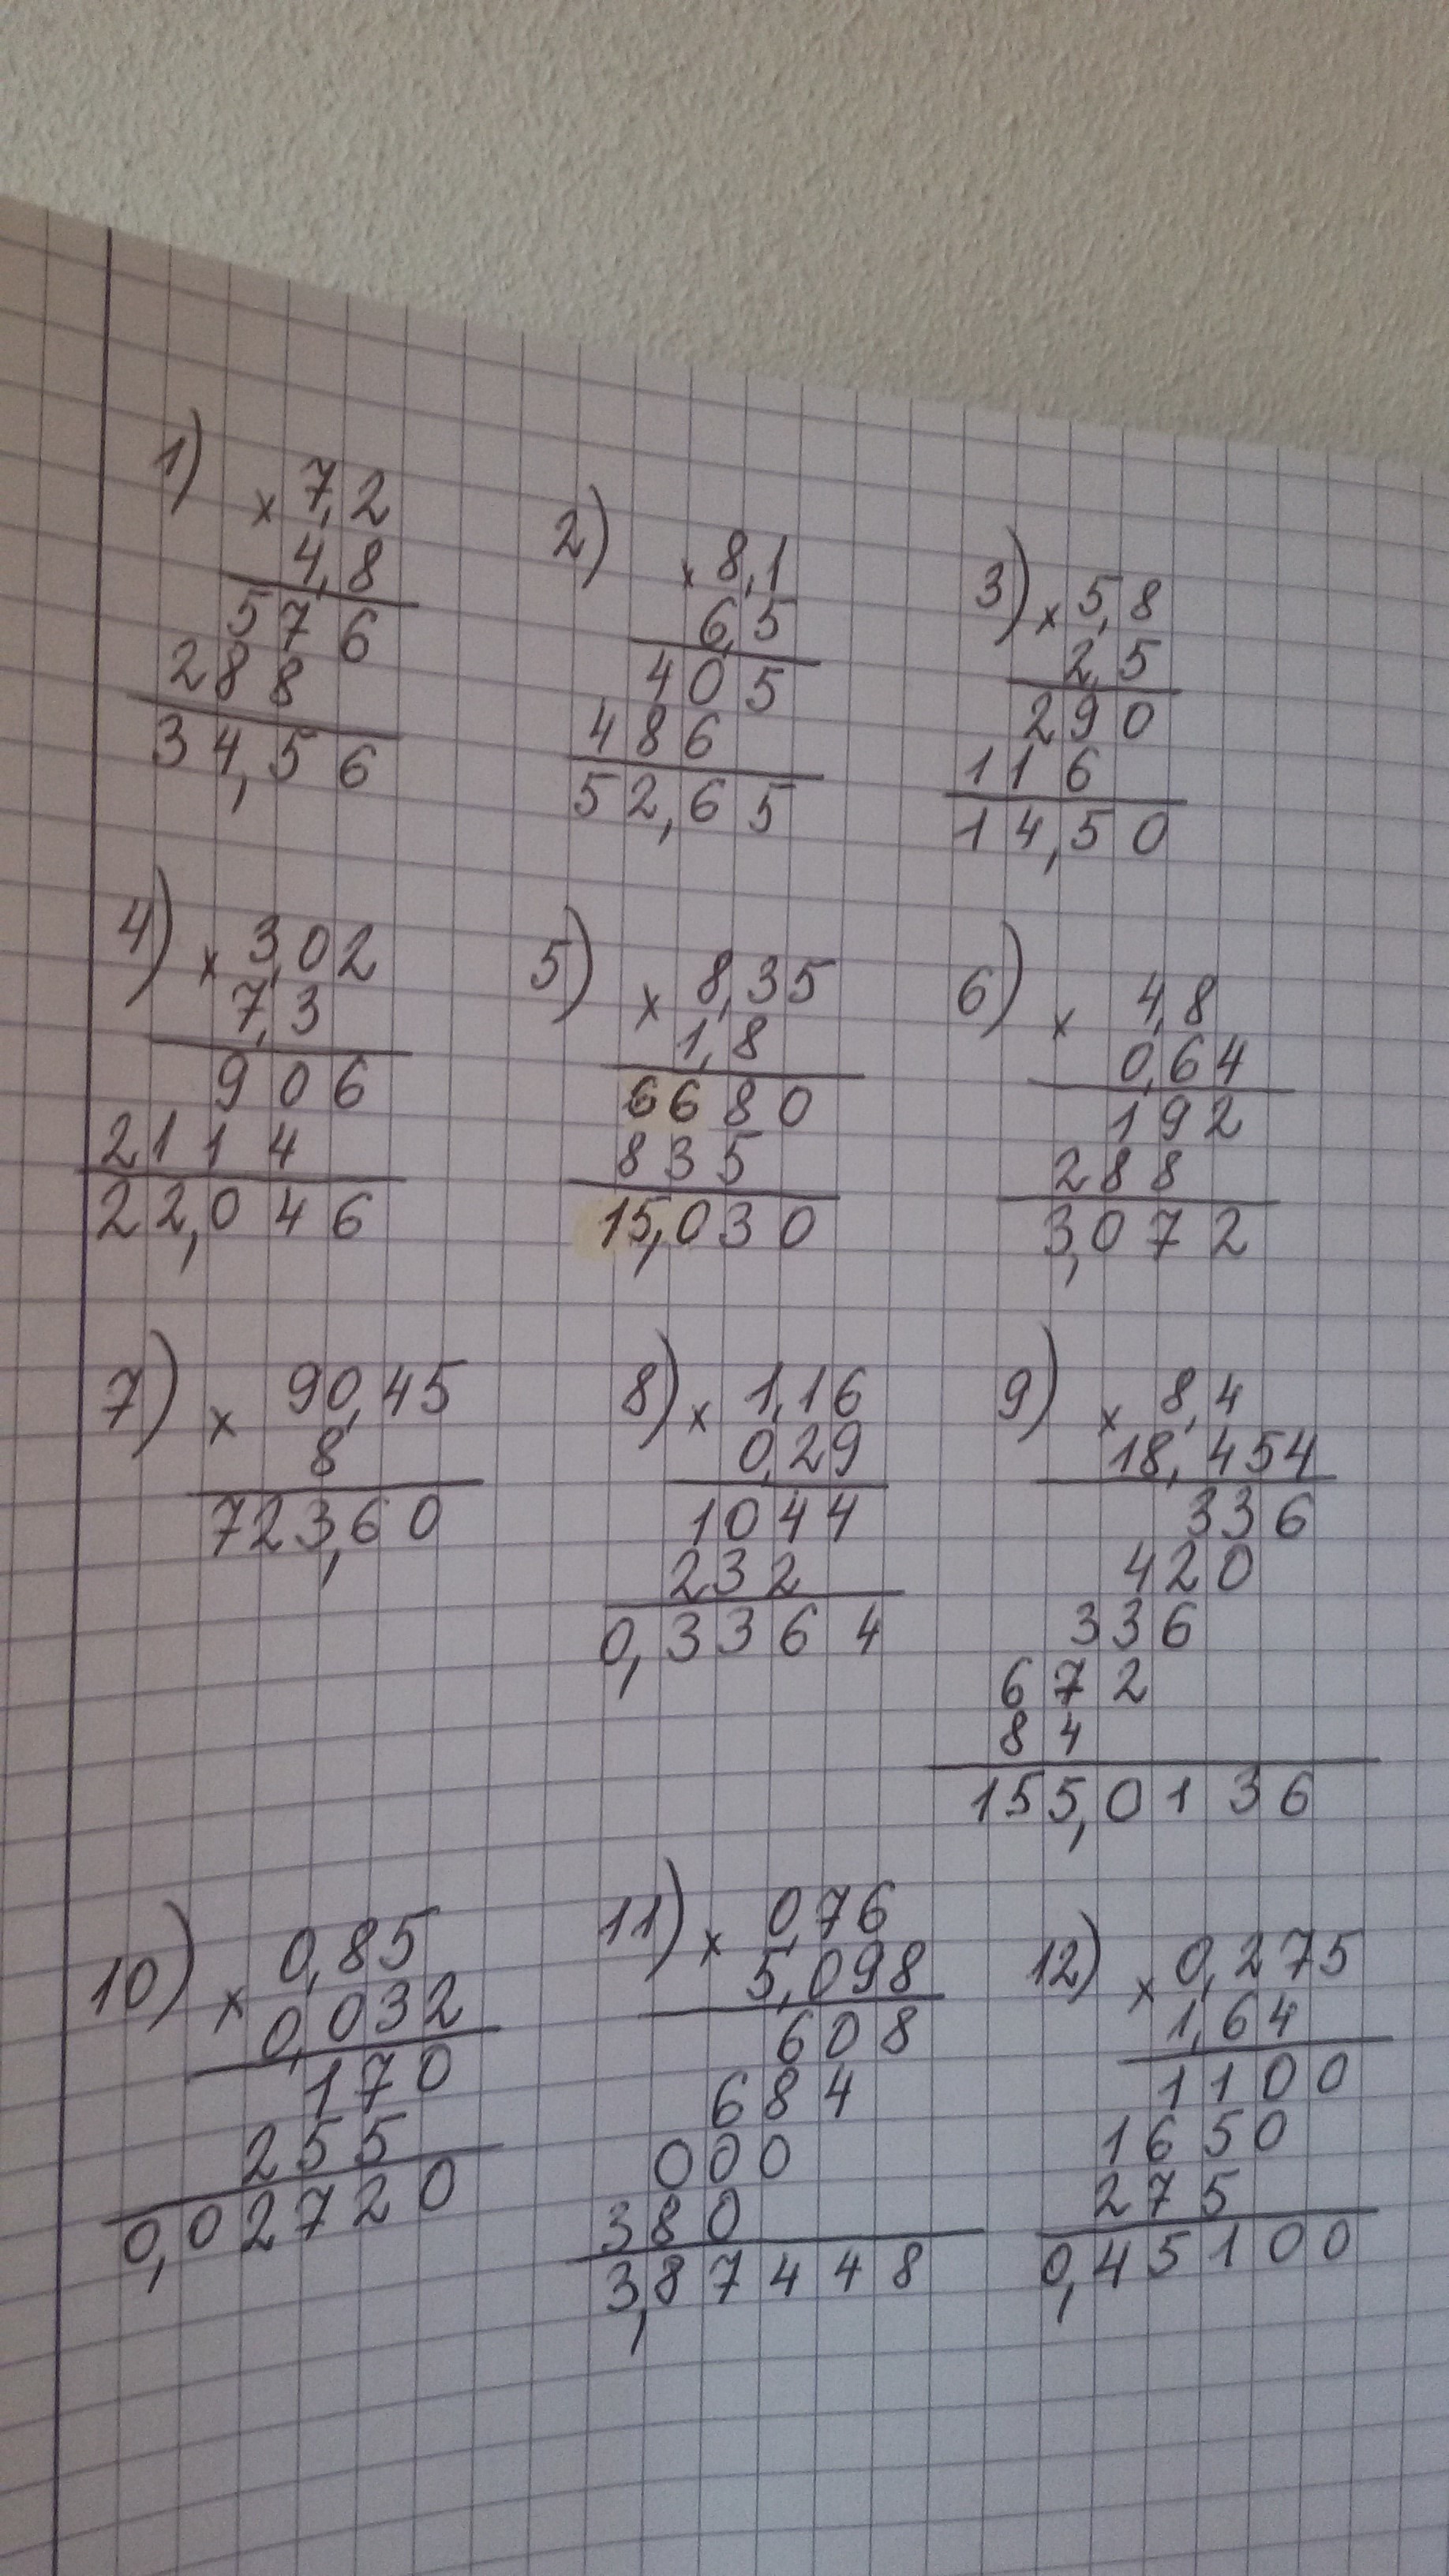 1)
× 7,2
4,8
576
288
34,56
2)
× 8,1
6,5
405
486
52,65
3)
× 5,8
2,5
290
116
14,50
4)
× 3,02
7,3
906
2114
22,046
5)
× 8,35
1,8
6680
835
15,030
6)
× 4,8
0,64
192
288
3,072
7)
× 90,45
8
723,60
8)
× 1,16
0,29
1044
232
0,3364
9)
× 8,4
18,454
336
420
336
672
84
155,0136
10)
× 0,85
0,032
170
255
0,02720
11)
× 0,76
5,098
608
684
000
380
3,87448
12)
× 0,275
1,64
1100
1650
275
0,45100